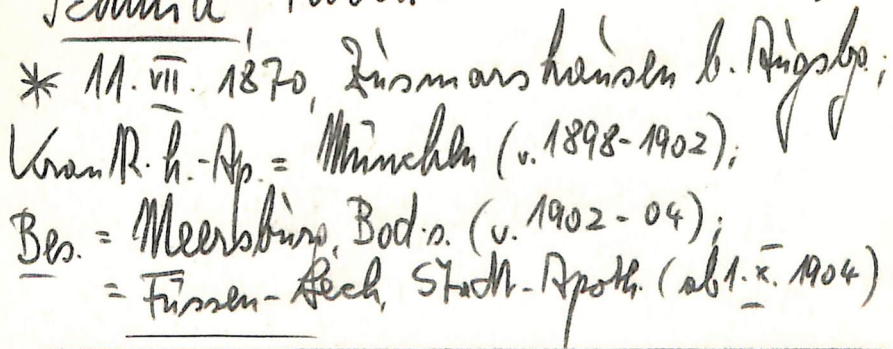 * 11. VII. 1870, Zusmarshausen b. Augsbg.;
Krank. h.-Ap. = München (v. 1898-1902);
Bes. = Meersburg, Bod.s. (v. 1902-04);
= Füssen-Lech, Stadt-Apoth. (ab 1. X. 1904)